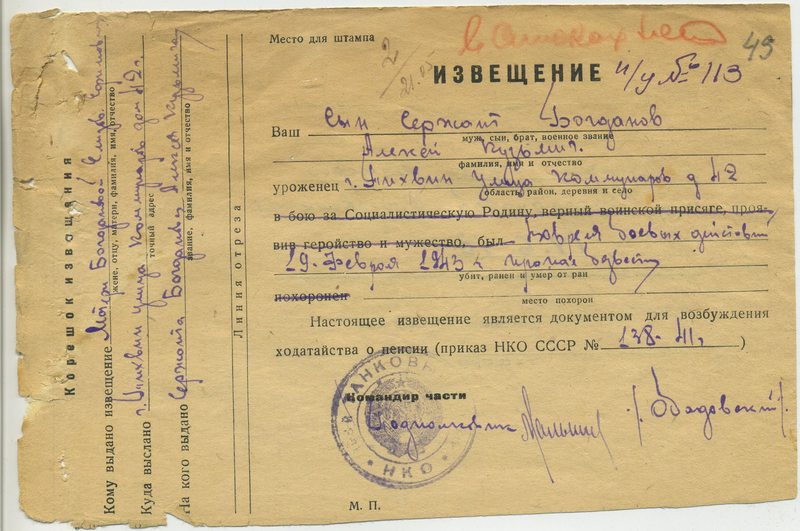 Место для штампа
45
ИЗВЕЩЕНИЕ и/у № 113
Ваш Сын Сержант Богданов
муж, сын, брат, военное звание
Алексей Кузьмич.
фамилия, имя и отчество
уроженец г. Лихвин улица Коммунаров д 42
область, район, деревня и село
в бою за Социалистическую Родину, верный воинской присяге, проя-
вив геройство и мужество, был во время боевых действий
19 февраля 1943 г пропал безвест
убит, ранен и умер от ран
похоронен
место похорон
Настоящее извещение является документом для возбуждения
ходатайства о пенсии (приказ НКО СССР № 138-41г)
Командир части
Подполковник
НКО
М. П.
Линия отреза
Корешок извещения
Кому выдано извещение Матери Богдановой
жене, отцу, матери, фамилия, имя, отчество
Куда выслано г. Лихвин улица Коммунаров дом 42
точный адрес
На кого выдано Сержанта Богданова Кузьмича
звание, фамилия, имя и отчество